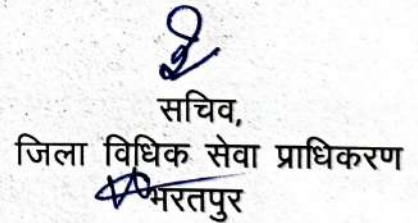 सचिव,
जिला विधिक सेवा प्राधिकरण
भरतपुर